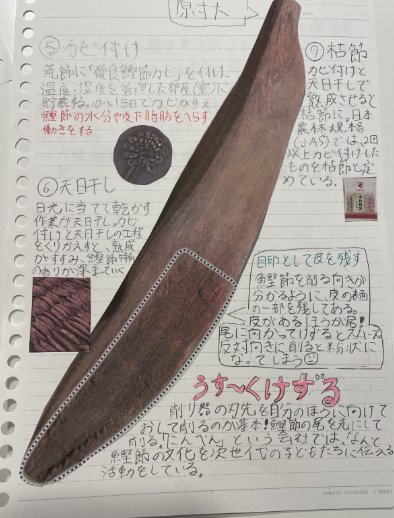 原寸大
⑤カビ付け
荒節に「優良鰹節カビ」を付け、
温度・湿度を管理した部屋(室)に
貯蔵する。10〜15日でカビが生え
鰹節の水分や皮下脂肪をへらす
働きをする
⑥天日干し
日光に当てて乾かす
作業が天日干し。カビ
付けと天日干しの工程
をくりかえすと、熟成
がすすみ、鰹節特有
のありが深まっていく
⑦枯節
カビ付けと
天日干しで
熟成させると
枯節に。日本
農林規格
(JAS)では、2回
以上カビ付けした
ものを枯節と定
めている。
目印として皮を残す
鰹節を削る向きが
分かるように、皮の表面
の一部を残してある。
皮があるほうが尾!
尾に向かってけずるとスムーズ
反対向きに削ると粉状に
なってしまう
うす〜くけずる
削り器の刃先を自分のほうに向けて
おして削るのが基本!鰹節の尾を元にして
削る。「にんべん」という会社では、なんと
鰹節の文化を次世代の子どもたちに伝える
活動をしている。
KOKUYO LOOSE-LEAF